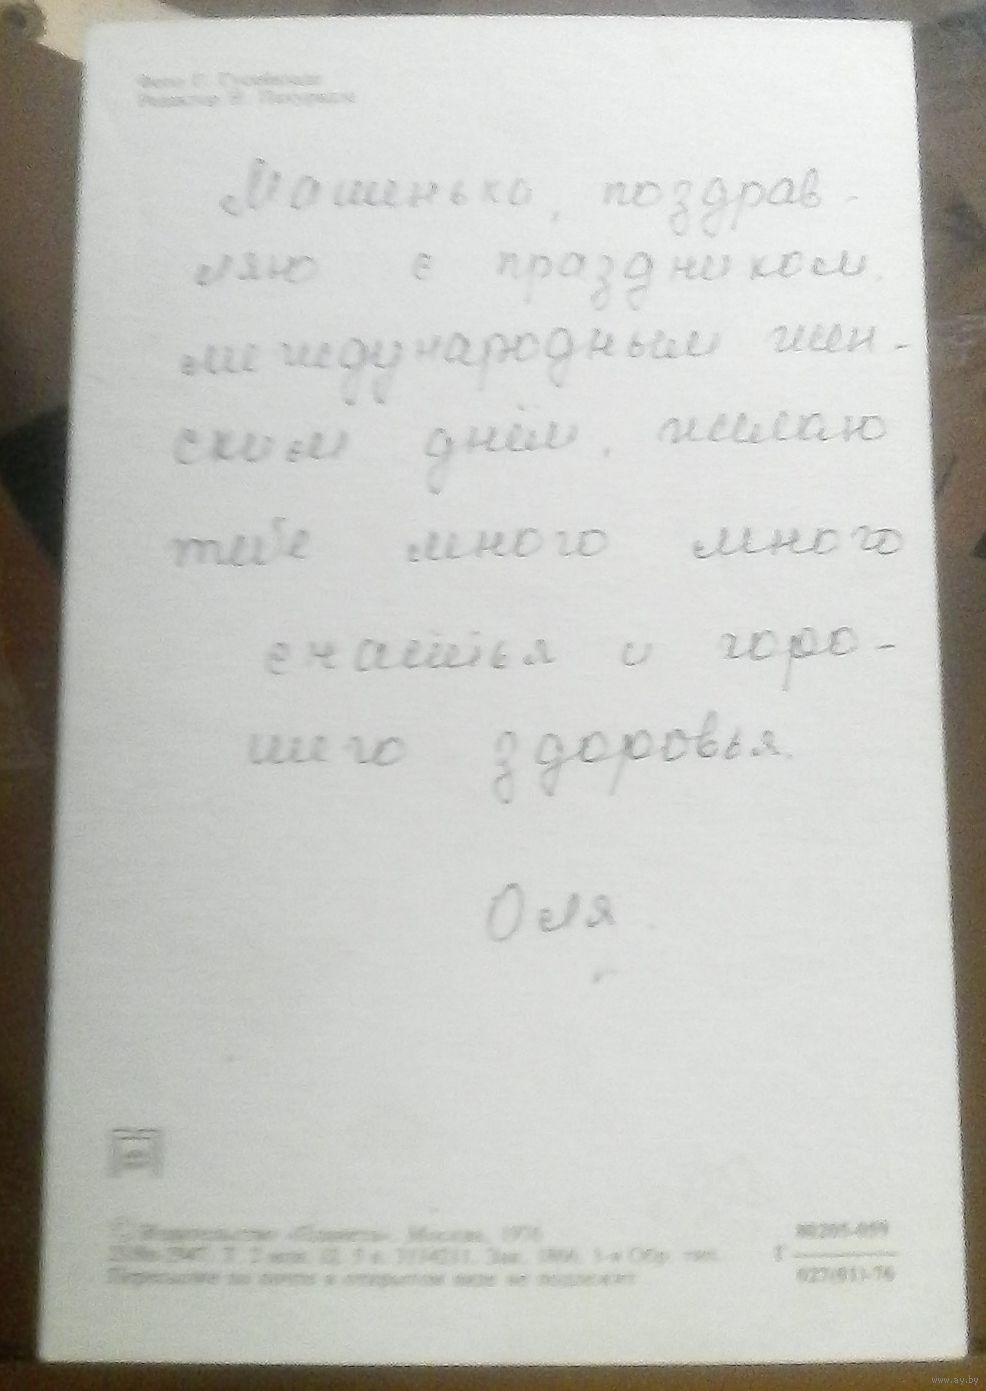 Машенька, поздрав-
ляю с праздником.
международным жен-
ским днём, желаю
тебе много много
счастья и горо-
шего здоровья.
Оля.
Издательство «Планета», Москва, 1976
Пересылке по почте в открытом виде не подлежит
80205-059
027(01)-76
www.ay.by